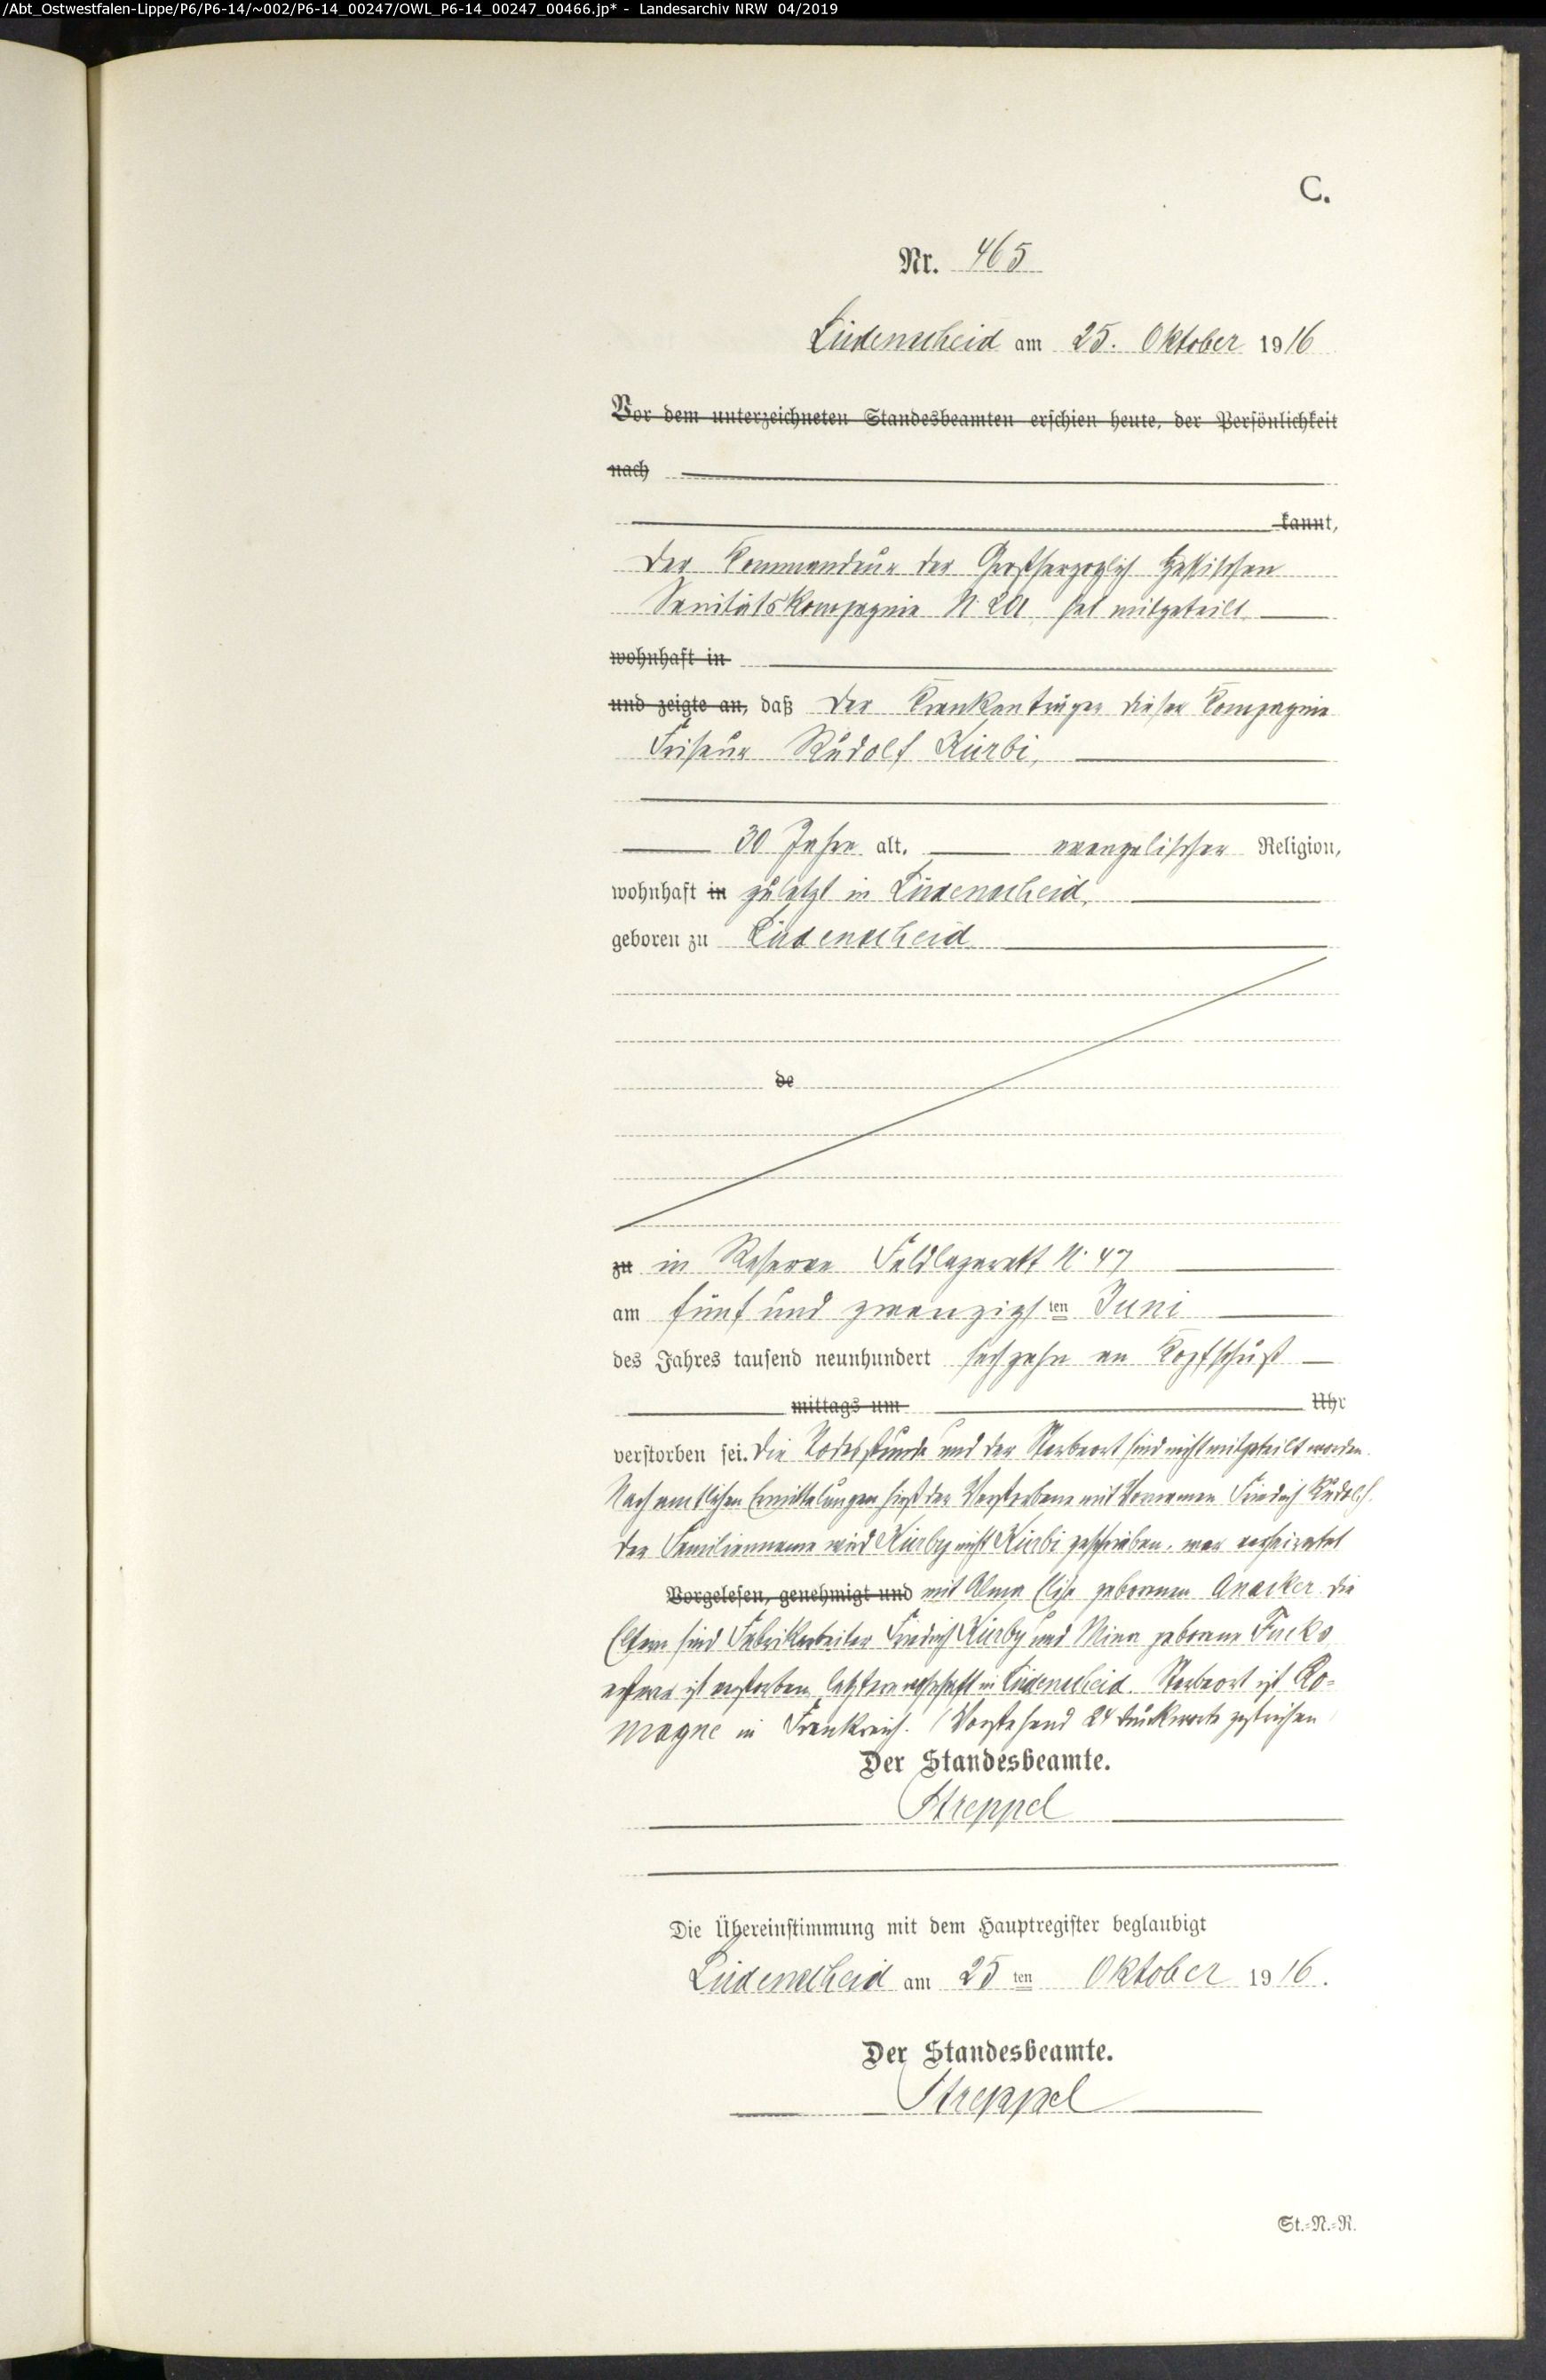 /Abt_Ostwestfalen-Lippe/P6/P6-14/~002/P6-14_00247/OWL_P6-14_00247_00466.jp* - Landesarchiv NRW 04/2019
C.
Nr. 465
Lüdenscheid am 25. Oktober 1916
Vor dem unterzeichneten Standesbeamten erschien heute, der Persönlichkeit
nach
kannt,
Der Kommandeur der Großherzoglich Hessischen
Sanitätskompagnie N. 201 hat mitgeteilt
wohnhaft in
und zeigte an, daß der Krankenträger dieser Kompagnie
Friseur Rudolf Kürbi,
30 Jahre alt, evangelischer Religion,
wohnhaft in zuletzt in Lüdenscheid,
geboren zu Lüdenscheid
de
zu in Reserve Feldlazarett N. 47
am fünf und zwanzigsten Juni
des Jahres tausend neunhundert sechzehn an Kopfschuß
mittags um Uhr
verstorben sei. Die Todesstunde und der Sterbeort sind nicht mitgeteilt worden.
Nach amtlichen Ermittelungen hieß der Verstorbene mit Vornamen Friedrich Rudolf.
Der Familienname wird Kürby nicht Kürbi geschrieben, war verheiratet
Vorgelesen, genehmigt und mit Alma Elise geborenen Anacker. Die
Eltern sind Fabrikarbeiter Friedrich Kürby und Mina geborene Fucks,
ersterer ist verstorben, letztere wohnhaft in Lüdenscheid. Sterbeort ist Ro=
magne in Frankreich. (Vorstehend 24 Druckworte gestrichen)
Der Standesbeamte.
Streppel
Die Übereinstimmung mit dem Hauptregister beglaubigt
Lüdenscheid am 25ten Oktober 1916.
Der Standesbeamte.
Streppel
St.=N.=R.